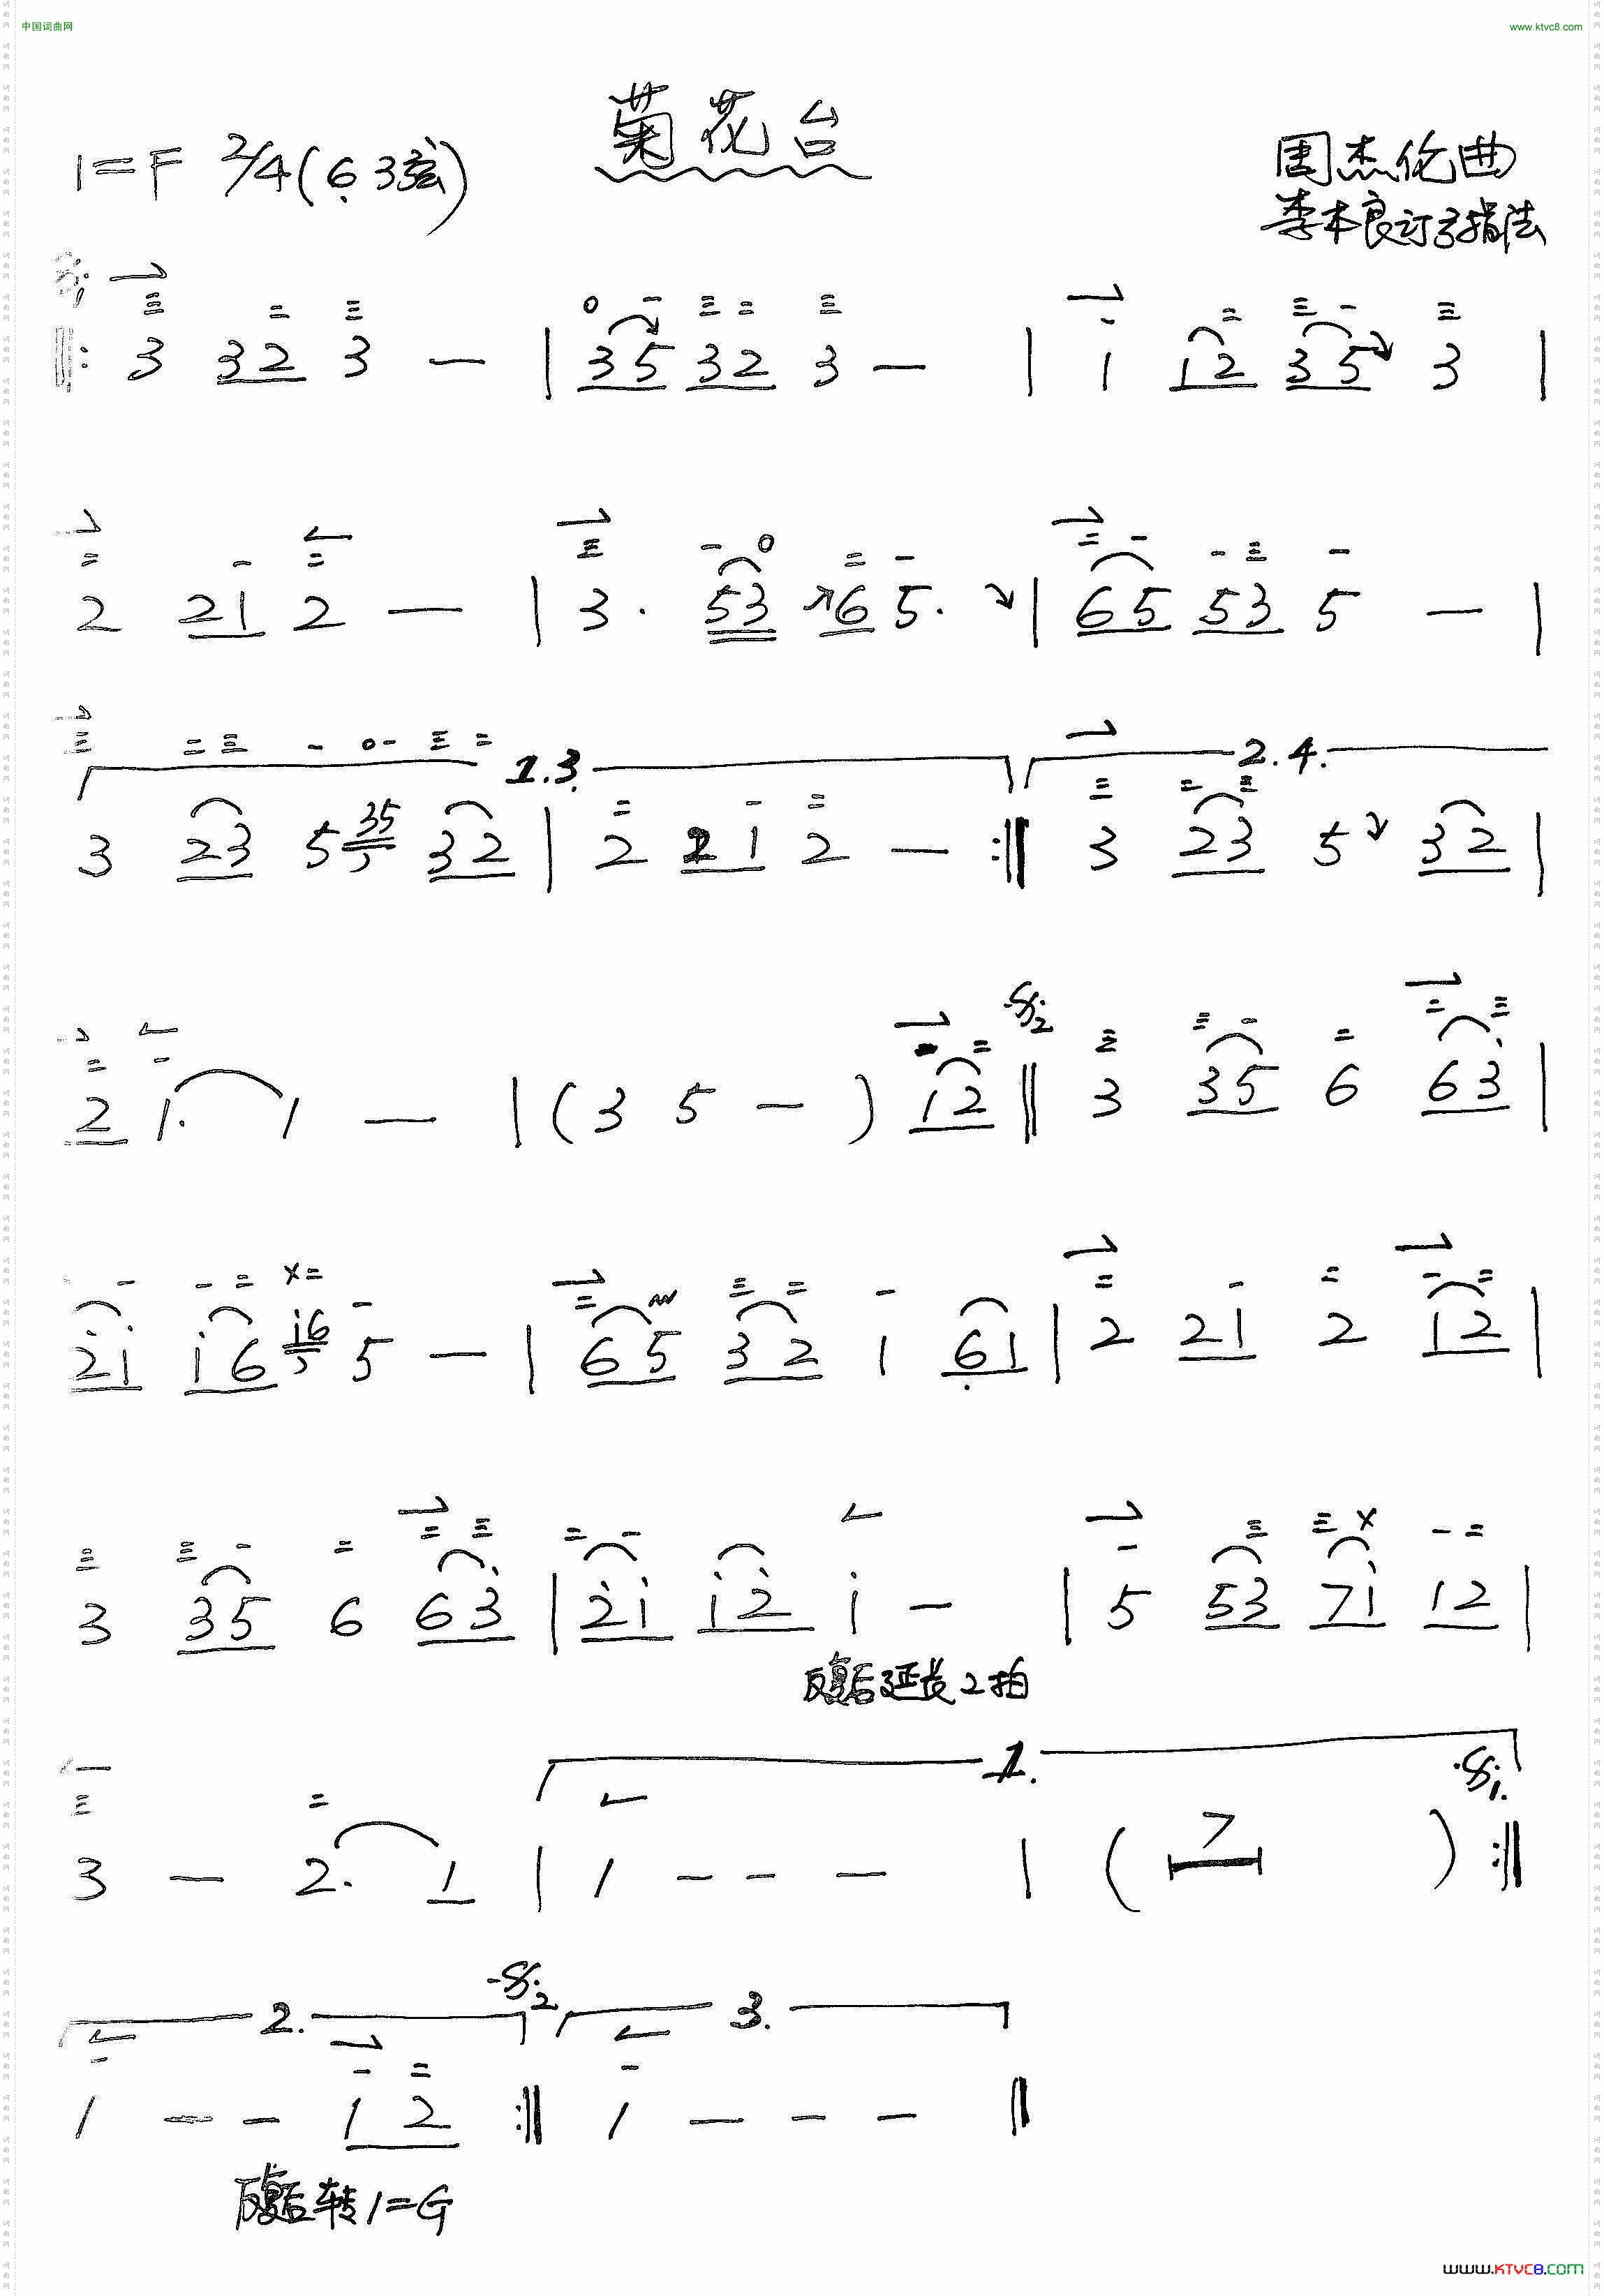 中国词曲网 www.ktvc8.com
菊花台
1=F 2/4(6̣ 3弦)
周杰伦曲
李本良订弓指法
𝄆 3 32 3 — | 35 32 3 — | 1 12 35 3 |
2 21 2 — | 3· 53 6 5· | 65 53 5 — |
1.3. 2.4.
3 23 5 35 32 | 2 21 2 — :‖ 3 23 5 32 |
2 1· 1 — | (3 5 —) 12 ‖ 3 35 6 63̇ |
2̇1̇ 1̇6 1̇6 5 — | 65 32 1 6̣1 | 2 21 2 12 |
3 35 6 63̇ | 2̇1̇ 1̇2̇ 1̇ — | 5 53 71̇ 12 |
反复后延长2拍
1.
3 — 2· 1 | 1 - - - | ( 7 ) :‖
2. 3.
1 - - 12 :‖ 1 - - - ‖
反复后转1=G
www.KTVC8.COM